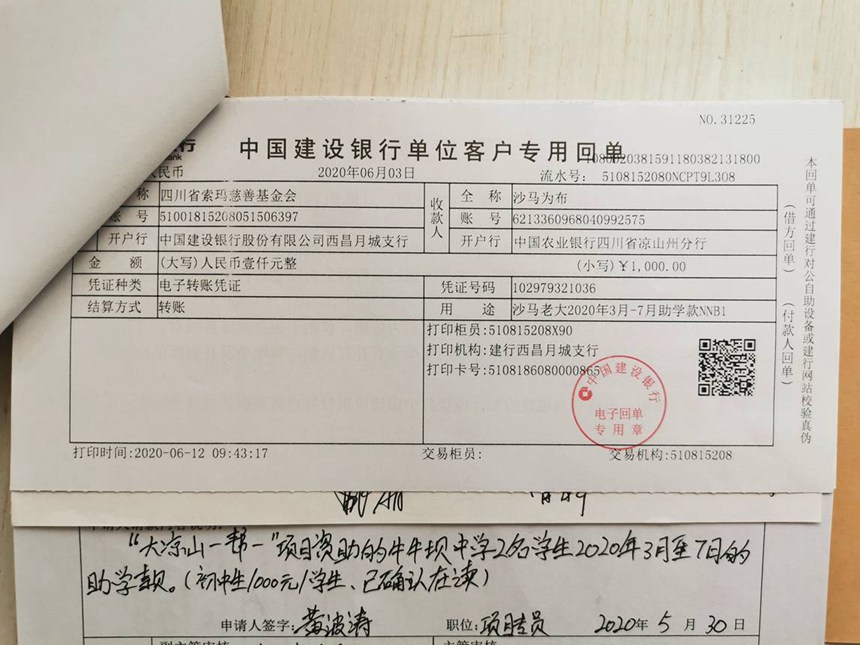 NO.31225
中国建设银行单位客户专用回单
080020381591180382131800
民币 2020年06月03日 流水号: 5108152080NCPT9L308
称 四川省索玛慈善基金会 收款人 全 称 沙马为布
账 号 51001815208051506397 账 号 6213360968040992575
开户行 中国建设银行股份有限公司西昌月城支行 开户行 中国农业银行四川省凉山州分行
金 额 (大写)人民币壹仟元整 (小写)¥1,000.00
凭证种类 电子转账凭证 凭证号码 102979321036
结算方式 转账 用 途 沙马老大2020年3月-7月助学款NNB1
打印柜员:510815208X90
打印机构:建行西昌月城支行
打印卡号:5108186080000865
中国建设银行
电子回单
专用章
打印时间:2020-06-12 09:43:17 交易柜员: 交易机构:510815208
(借方回单) (付款人回单)
本回单可通过建行对公自助设备或建行网站校验真伪
"大凉山一帮一"项目资助的牛牛坝中学2名学生2020年3月至7月的
助学款。(初中生1000元/学生、已确认在读)
申请人签字:黄波涛 职位:项目专员 2020年 5 月 30 日